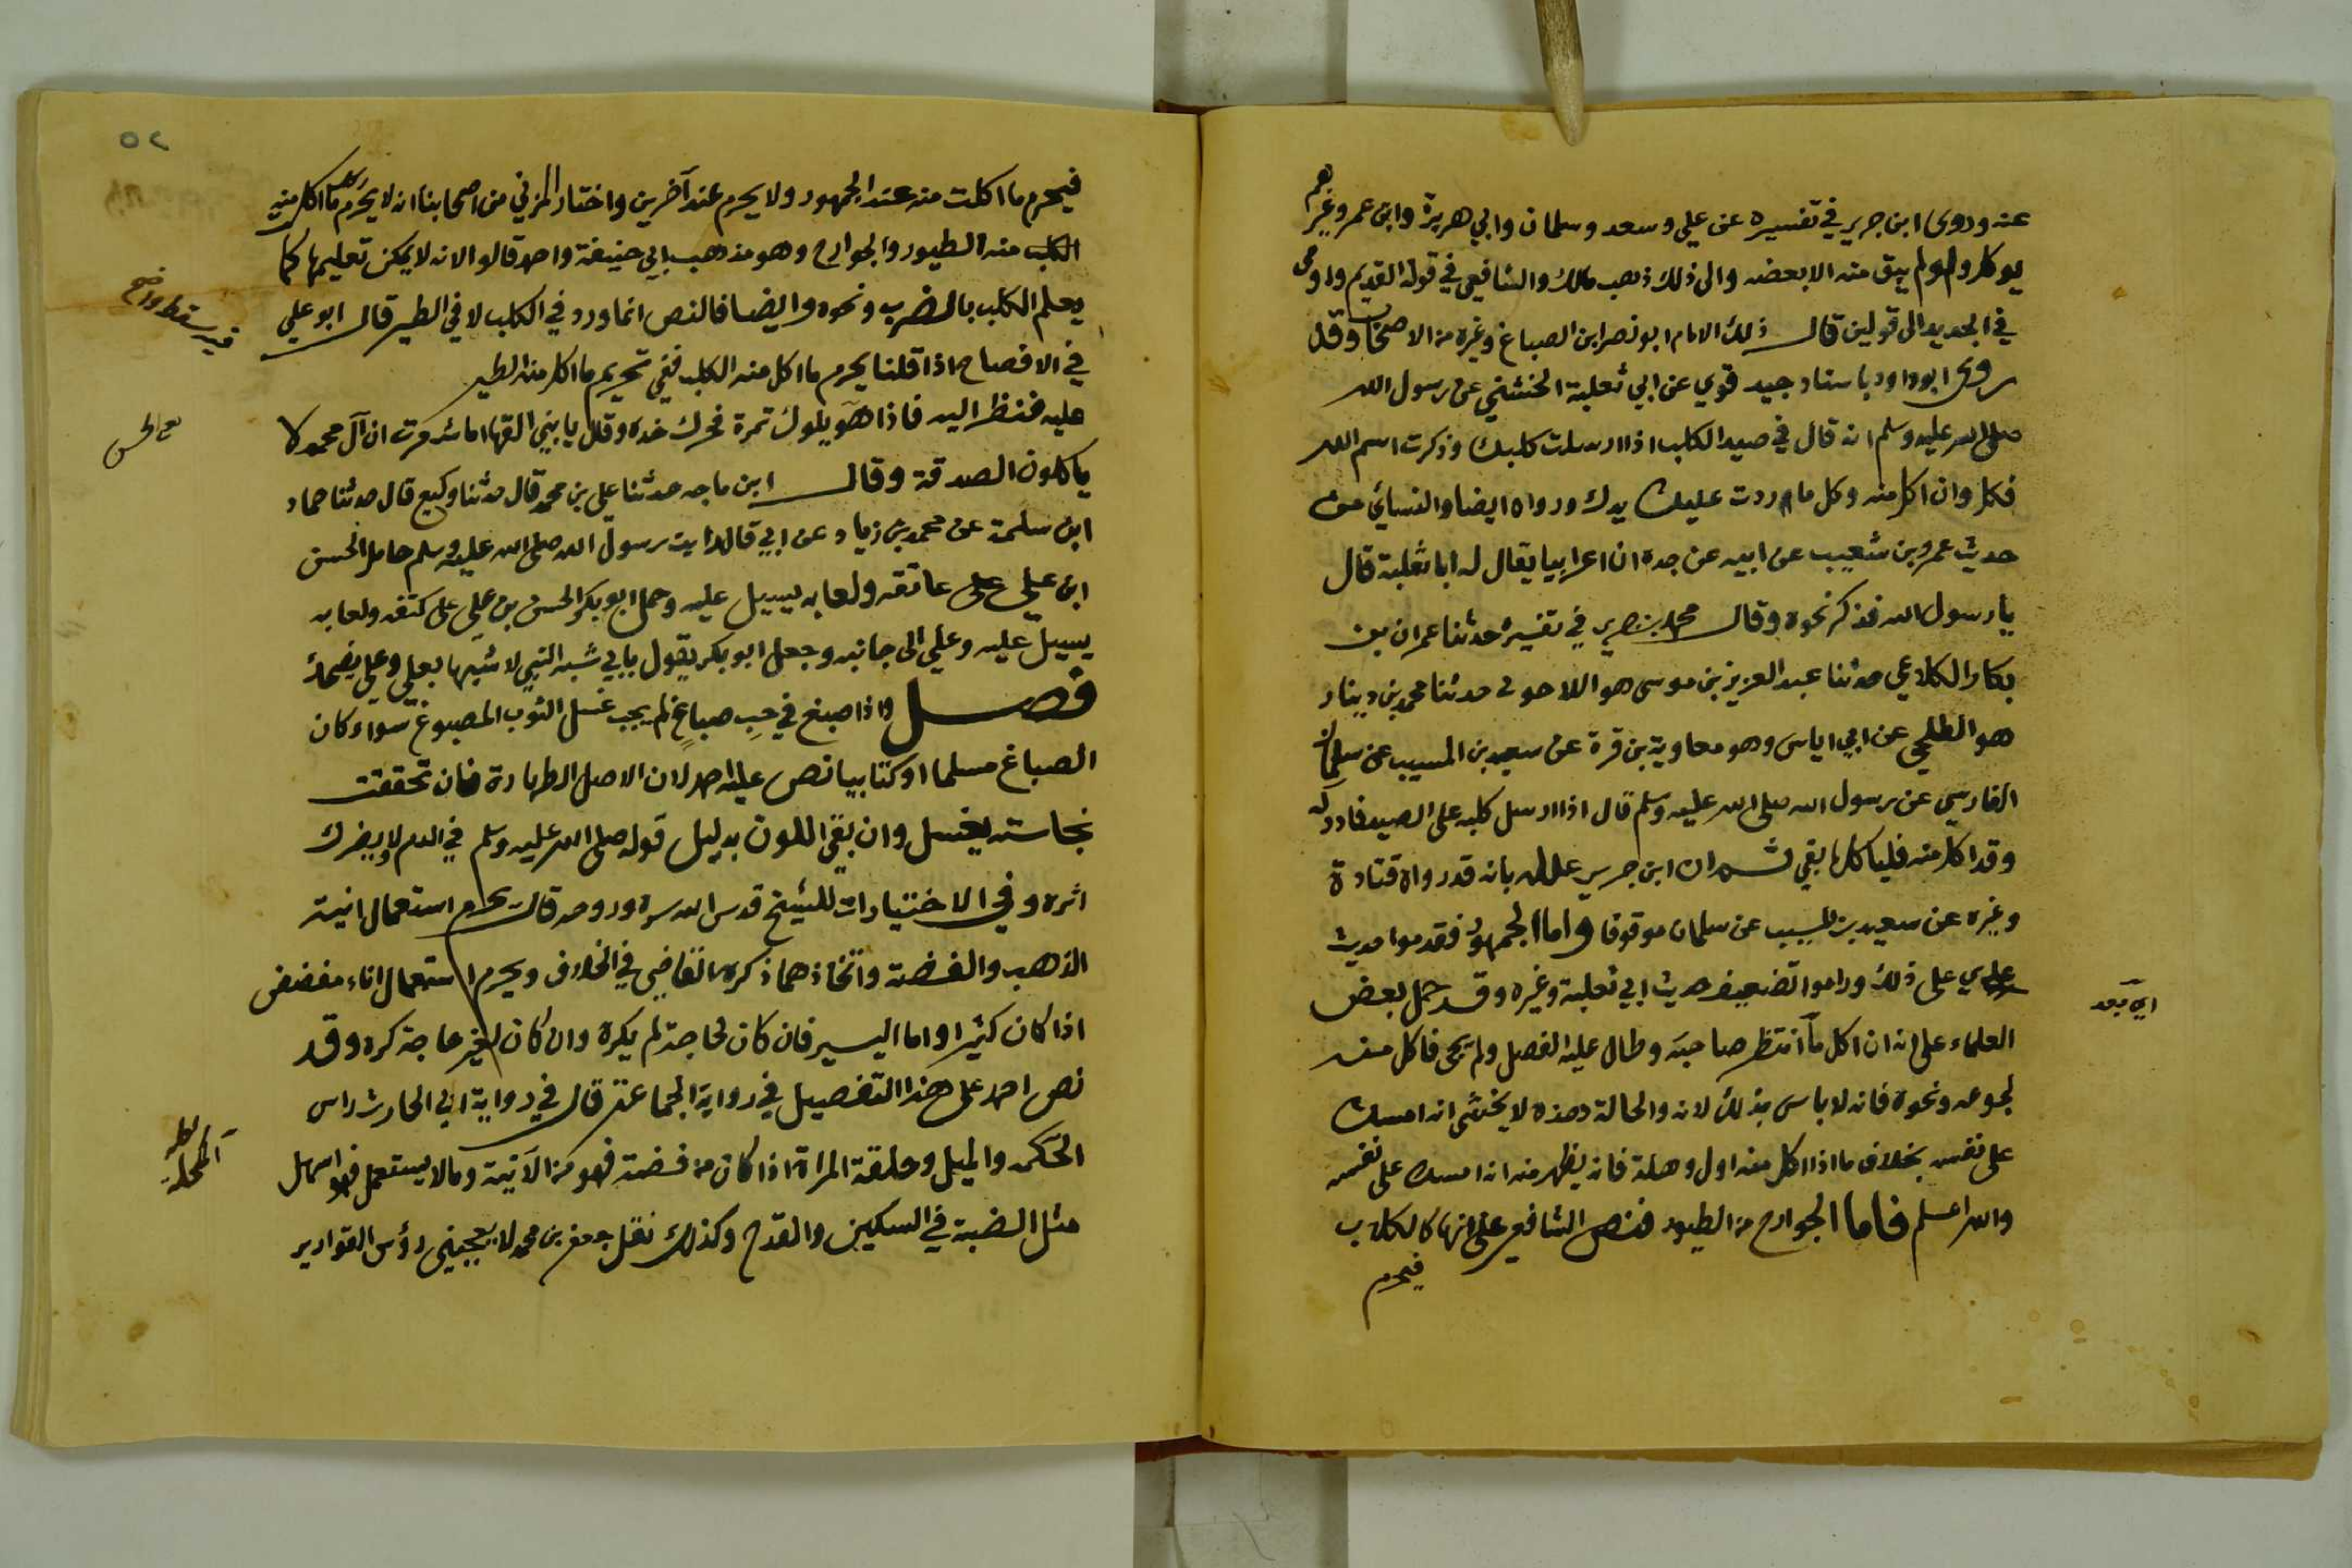 عنه وروى ابن جرير في تفسيره عن علي وسعد وسلمان وابي هريرة وابن عمر وغيرهم
يوكل ولو لم يبق منه الا بعضه والى ذلك ذهب مالك والشافعي في قوله القديم واومى
في الجديد الى قولين قال ذلك الامام ابو نصر ابن الصباغ وغيره من الاصحاب وقد
روى ابو داود باسناد جيد قوي عن ابي ثعلبة الخشني عن رسول الله
صلى الله عليه وسلم انه قال في صيد الكلب اذا ارسلت كلبك وذكرت اسم الله
فكل وان اكل منه وكل ما ردت عليك يدك ورواه ايضا والنسائي من
حديث عمرو بن شعيب عن ابيه عن جده ان اعرابيا يقال له ابا ثعلبة قال
يا رسول الله فذكر نحوه وقال محمد بن جرير في تفسيره حدثنا عمران بن
بكار الكلاعي حدثنا عبد العزيز بن موسى هو اللاحوني حدثنا محمد بن دينار
هو الطلحي عن ابي اياس وهو معاوية بن قرة عن سعيد بن المسيب عن سلمان
الفارسي عن رسول الله صلى الله عليه وسلم قال اذا ارسل كلبه على الصيد فادركه
وقد اكل منه فلياكل ما بقي ثم ان ابن جرير علله بانه قد رواه قتادة
وغيره عن سعيد بن المسيب عن سلمان موقوفا واما الجمهور فقدموا حديث
عدي على ذلك وراموا تضعيف حديث ابي ثعلبة وغيره وقد حمل بعض
العلماء على انه ان اكل ما انتظر صاحبه وطال عليه الفصل ولم يجى فاكل منه
لجوعه ونحوه فانه لا باس بذلك لانه والحالة هذه لا يخشى انه امسك
على نفسه بخلاف ما اذا اكل منه اول وهلة فانه يظهر منه انه امسك على نفسه
والله اعلم فاما الجوارح من الطيور فنص الشافعي على انها كالكلاب
فيحرم
اي بعد
٥٢
فيحرم ما اكلت منه عند الجمهور ولا يحرم عند آخرين واختار المزني من اصحابنا انه لا يحرم اكل ما اكل منه
الكلب منه الطيور والجوارح وهو مذهب ابي حنيفة واحمد قالوا لانه لا يمكن تعليمها كما
يعلم الكلب بالضرب ونحوه وايضا فالنص انما ورد في الكلب لا في الطير قال ابو علي
في الافصاح اذا قلنا يحرم ما اكل منه الكلب ففي تحريم ما اكل منه الطير
عليه فنظر اليه فاذا هو يلوك تمرة فحرك خده وقال يا بني القها اما شعرت ان آل محمد لا
ياكلون الصدقة وقال ابن ماجه حدثنا علي بن محمد قال حدثنا وكيع قال حدثنا حماد
ابن سلمة عن محمد بن زياد عن ابي قال رايت رسول الله صلى الله عليه وسلم حامل الحسن
ابن علي على عاتقه ولعابه يسيل عليه وحمل ابو بكر الحسن بن علي على كتفه ولعابه
يسيل عليه وعلي الى جانبه وجعل ابو بكر يقول بابي شبه النبي لا شبيها بعلي وعلي يضحك
فصل واذا صبغ في حب صباغ لم يجب غسل الثوب المصبوغ سواء كان
الصباغ مسلما او كتابيا نص عليه احمد لان الاصل الطهارة فان تحققت
نجاسته يغسل وان بقي اللون بدليل قوله صلى الله عليه وسلم في الدم لا يضرك
اثره وفي الاختيارات للشيخ قدس الله سره وروحه قال يحرم استعمال انية
الذهب والفضة واتخاذهما ذكره القاضي في الخلاف ويحرم استعمال اناء مفضض
اذا كان كثيرا واما اليسير فان كان لحاجة لم يكره وان كان لغير حاجة كره وقد
نص احمد على هذا التفصيل في رواية الجماعة قال في رواية ابي الحارث راس
المكحلة والميل وحلقة المراة اذا كان من فضة فهو من الآنية وما لا يستعمل فهو اسهل
مثل الضبة في السكين والقدح وكذلك نقل جعفر بن محمد لا يعجبني رؤس القوارير
فيه سقط واضح